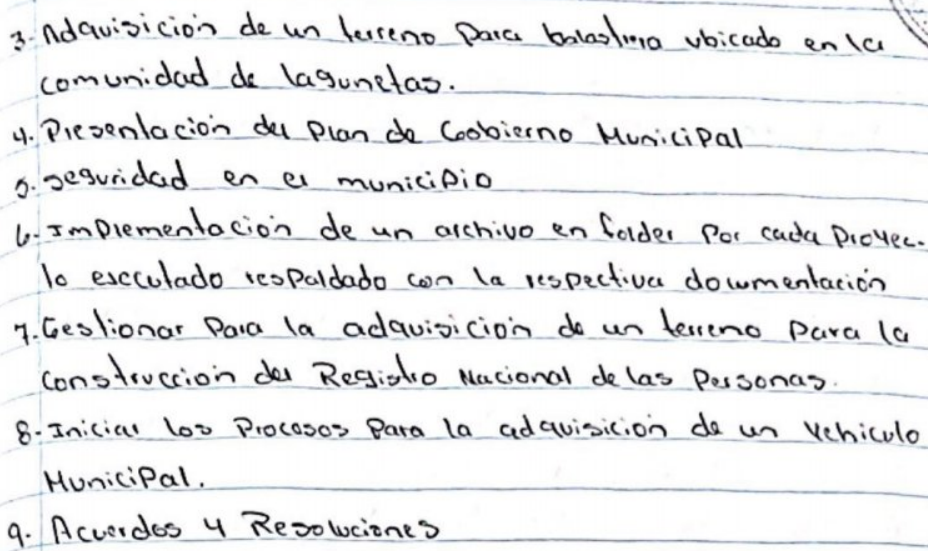 3- Adquisición de un terreno para balastrera ubicado en la
comunidad de lagunetas.
4. Presentación del Plan de Gobierno Municipal
5. seguridad en el municipio
6- Implementación de un archivo en folder por cada proyec-
to escutado respaldado con la respectiva documentación
7. Gestionar para la adquisición de un terreno para la
construccion del Registro Nacional de las Personas.
8- Iniciar los Procesos para la adquisición de un vehiculo
Municipal.
9. Acuerdos y Resoluciones